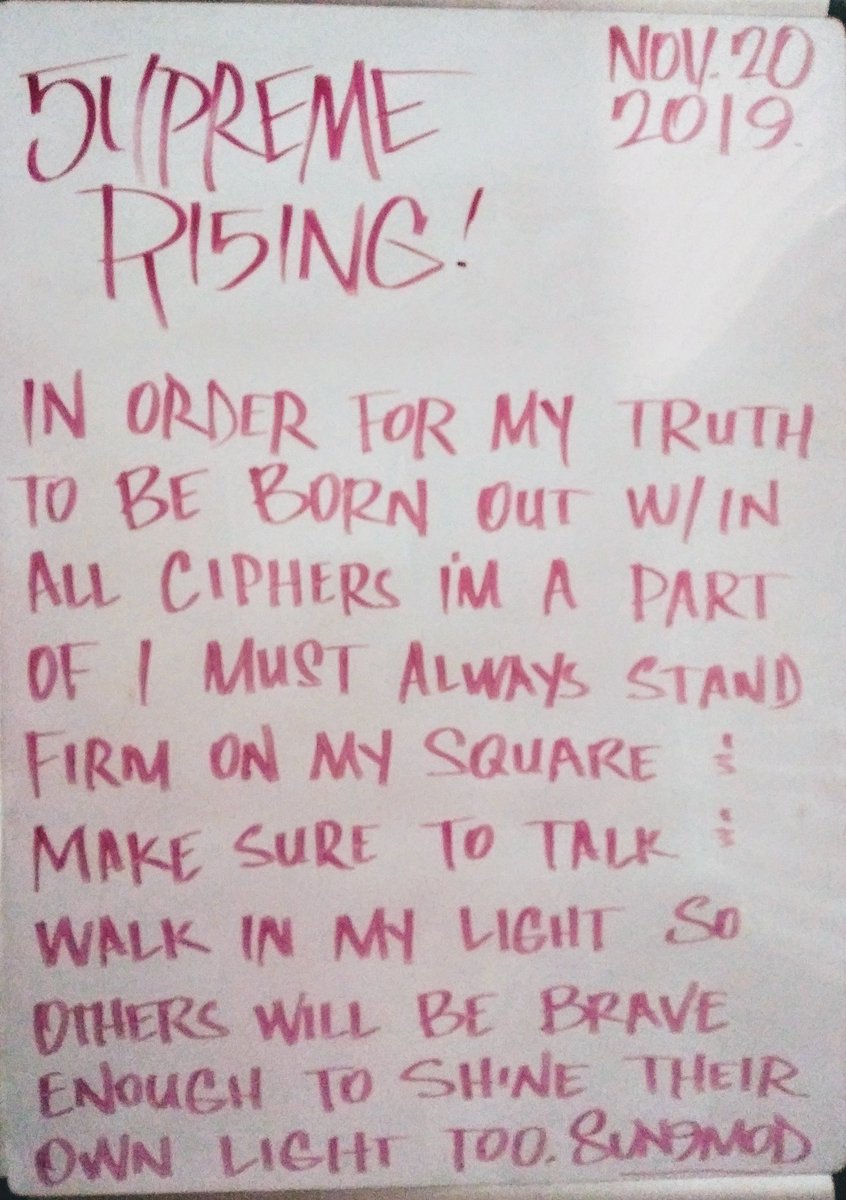 5UPREME
RI5ING!
NOV. 20
2019.
IN ORDER FOR MY TRUTH
TO BE BORN OUT W/IN
ALL CIPHERS I'M A PART
OF I MUST ALWAYS STAND
FIRM ON MY SQUARE &
MAKE SURE TO TALK &
WALK IN MY LIGHT SO
OTHERS WILL BE BRAVE
ENOUGH TO SHINE THEIR
OWN LIGHT TOO. 8UN9MOD